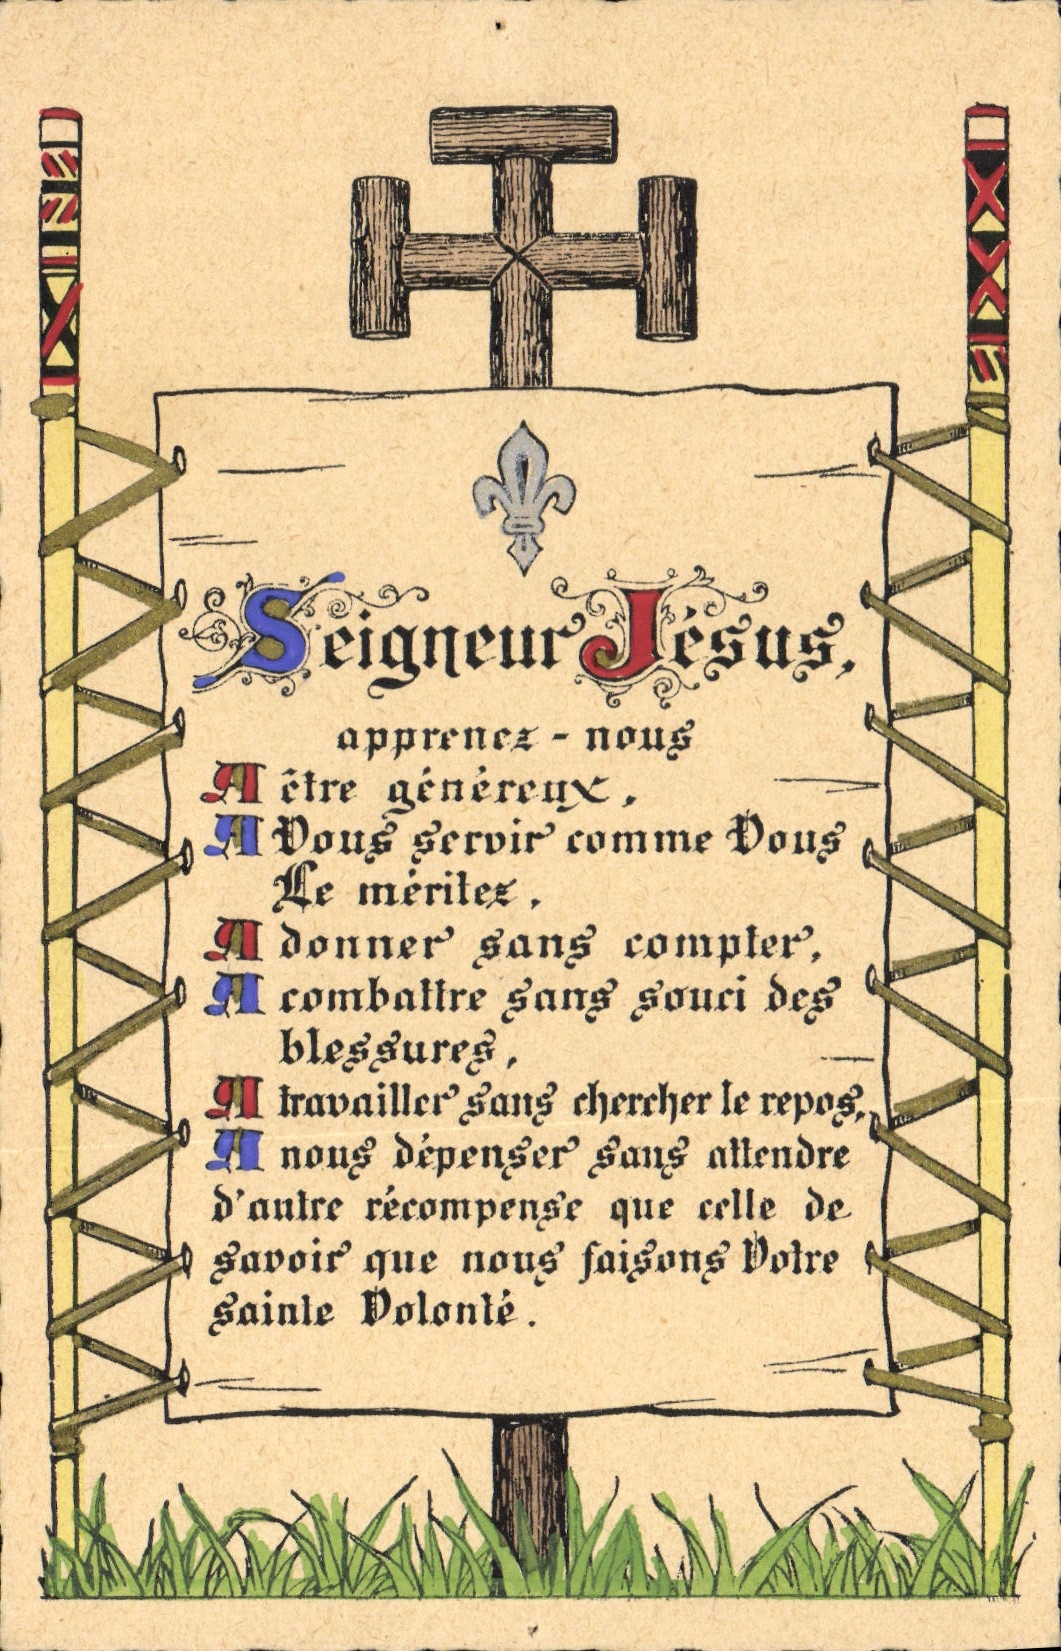 Seigneur Jésus,
apprenez-nous
A être généreux,
A Vous servir comme Vous
Le méritez,
A donner sans compter,
A combattre sans souci des
blessures,
A travailler sans chercher le repos,
A nous dépenser sans attendre
d'autre récompense que celle de
savoir que nous faisons Votre
sainte Volonté.